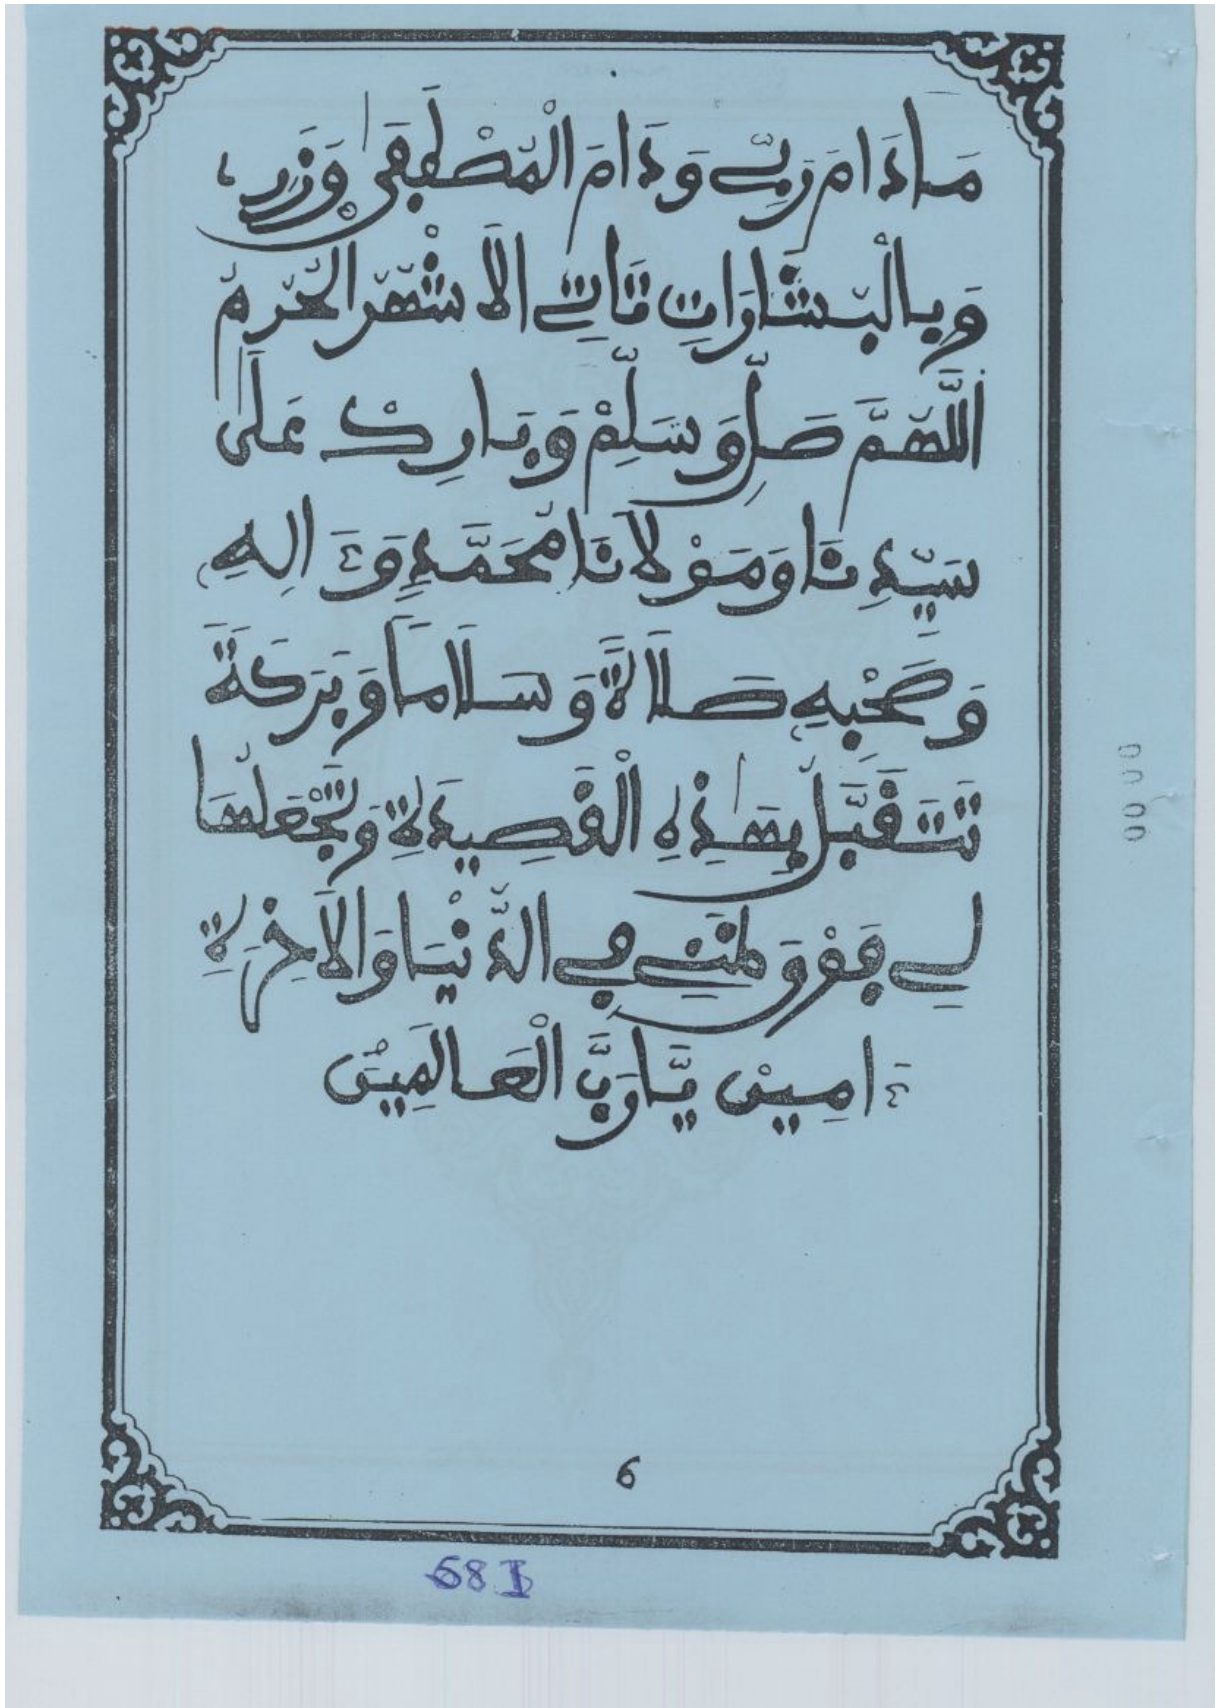 مَا دَامَ رَبِّي وَدَامَ الْمُصْطَفَى وَزَرِ
وَبِالْبِشَارَاتِ تَاتِي الَاشْهُرُ الْحُرُمُ
اَللَّهُمَّ صَلِّ وَسَلِّمْ وَبَارِكْ عَلَى
سَيِّدِنَا وَمَوْلَانَا مُحَمَّدٍ وَءَالِهِ
وَصَحْبِهِ صَلَاةً وَسَلَامًا وَبَرَكَةً
تَتَقَبَّلُ بِهَا هَذِهِ الْقَصِيدَةِ وَتَجْعَلُهَا
لِي فَوْقَ ظَنِّي فِي الدُّنْيَا وَالَاخِرَةِ
ءَامِينْ يَّارَبَّ الْعَالَمِينْ
6
68 I